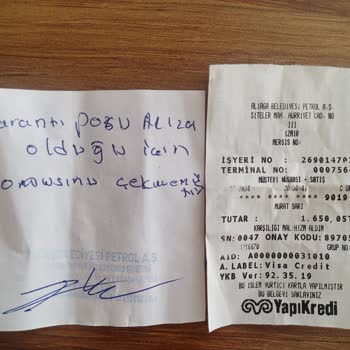 aranti posu Arıza
olduğu için
çekmemiştir
BELEDİYESİ PETROL A.Ş.
ALIAGA BELEDİYESİ PETROL A.Ş.
SİTELER MAH. HURRIYET CAD. NO
III
IZMIR
MERSIS NO:
İŞYERİ NO : 26901479
TERMINAL NO: 000756
MÜŞTERİ NÜSHASI - SATIŞ
2024
**** **** 9019
MURAT SARI
TUTAR : 1.650,05T
KARŞILIĞI MAL/HIZM ALDIM
SN:0047 ONAY KODU: 89705
GRUP NO
AID: A0000000031010
A. LABEL: Visa Credit
YKB Ver: 92.35.19
BU İŞLEM YURTİÇİ KARTLA YAPILMIŞTIR
BU BELGEYİ SAKLAYINIZ
YapıKredi